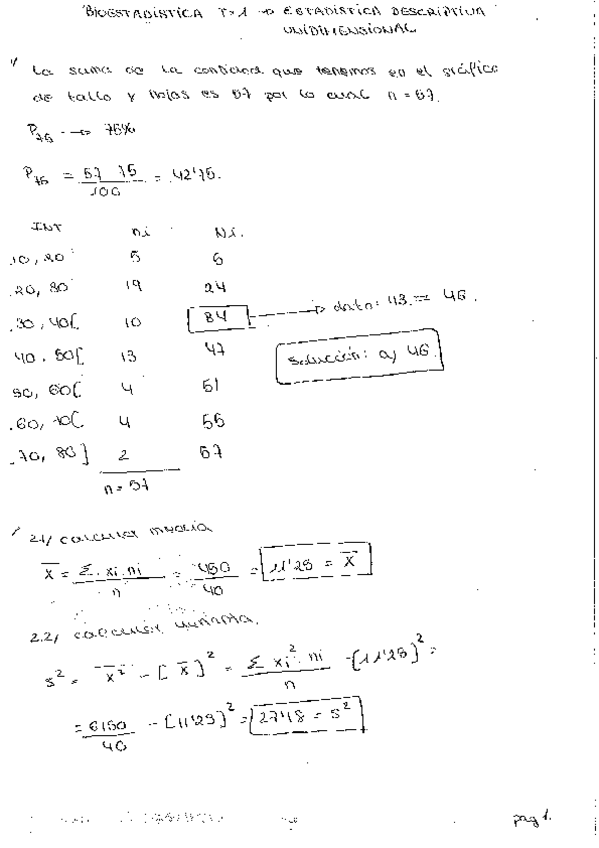 BIOESTADÍSTICA T-1 → ESTADÍSTICA DESCRIPTIVA
UNIDIMENSIONAL
1/ La suma de la cantidad que tenemos en el gráfico
de tallo y hojas es 57 por lo cual n = 57.
P75 → 75%
P75 = 57 · 75 / 100 = 42'75.
INT ni Ni.
10, 20 5 5
20, 30 19 24
30, 40[ 10 34 → dato: 43 = 46.
40, 50[ 13 47 solución: a) 46.
50, 60[ 4 51
60, 70[ 4 55
70, 80] 2 57
n = 57
2.1/ calcular media
x̄ = Σ xi · ni / n = 450 / 40 = 11'25 = x̄
2.2/ calcular varianza.
s² = x̄² - [x̄]² = Σ xi² · ni / n - [11'25]² =
= 6150 / 40 - [11'25]² = 27'18 = s²
pag 1.